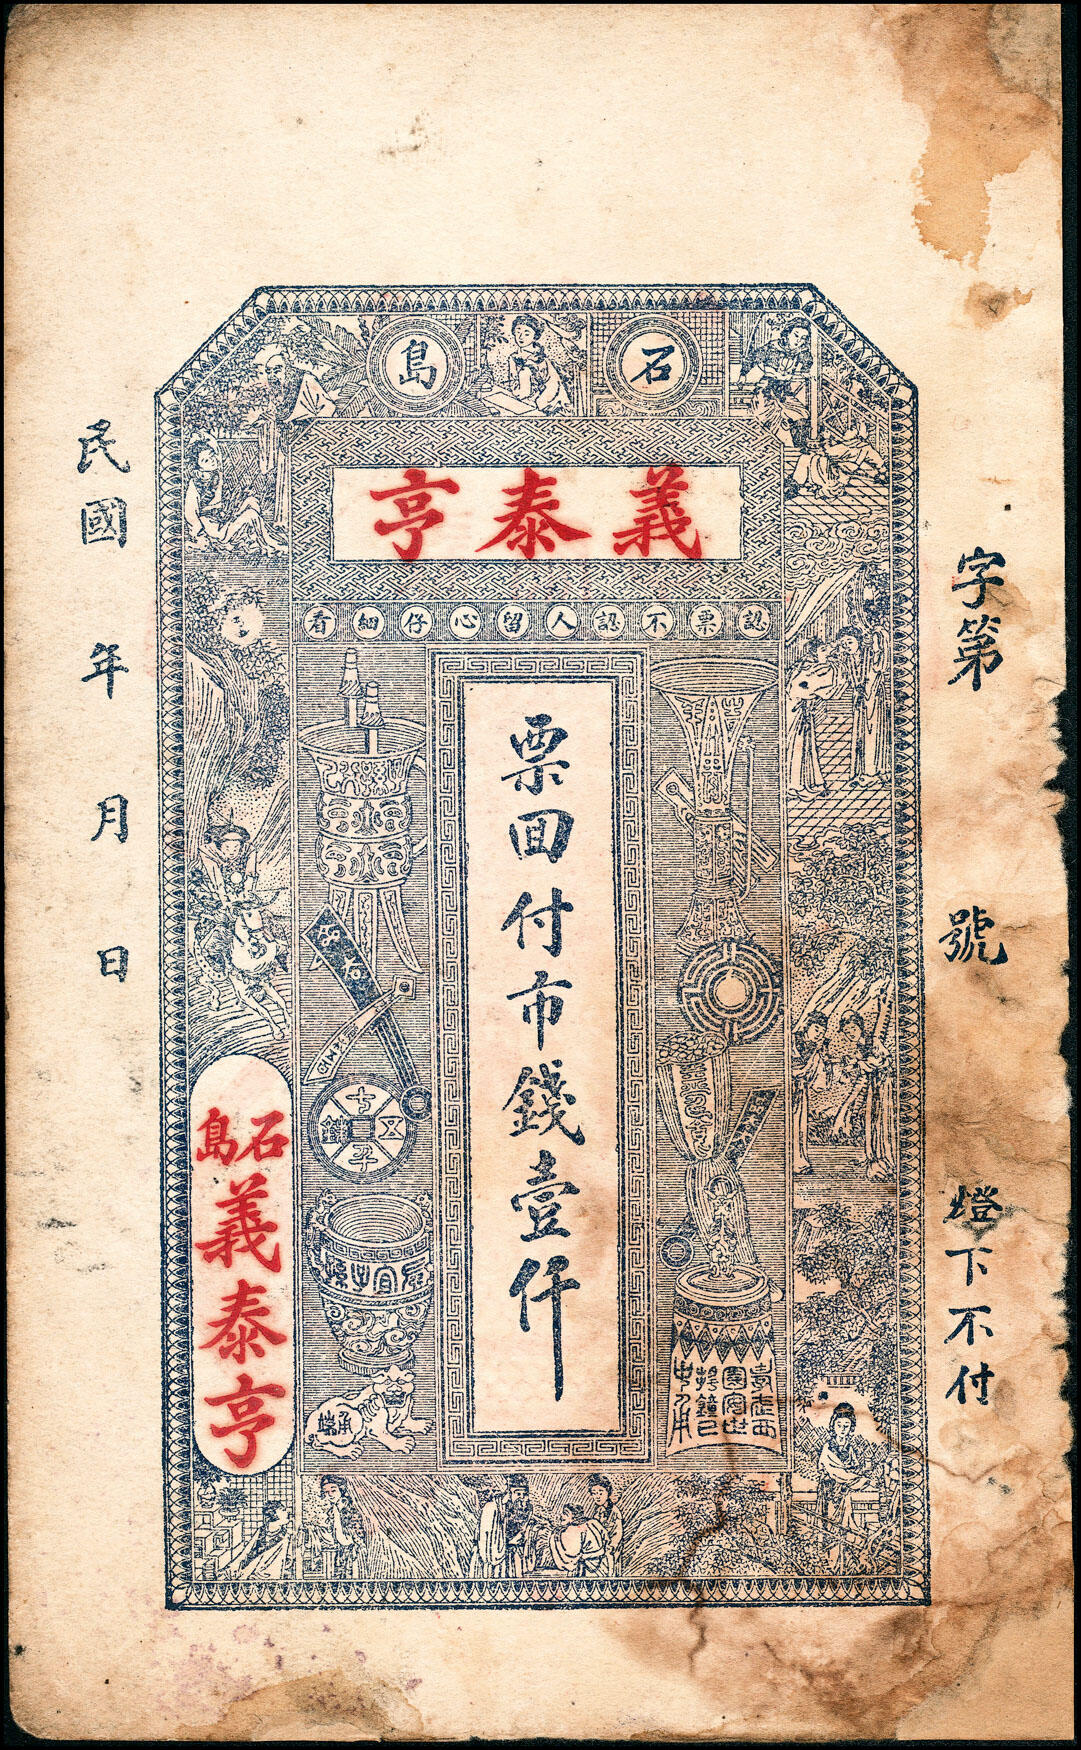 石島
義泰亨
認票不認人留心仔細看
票囬付市錢壹仟
字第 號
燈下不付
民國 年 月 日
石島
義泰亨